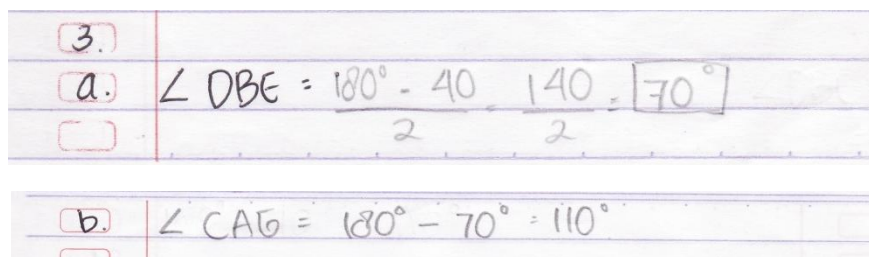 3.
a. ∠ DBE = (180° - 40)/2 = 140/2 = 70°
b. ∠ CAG = 180° - 70° = 110°